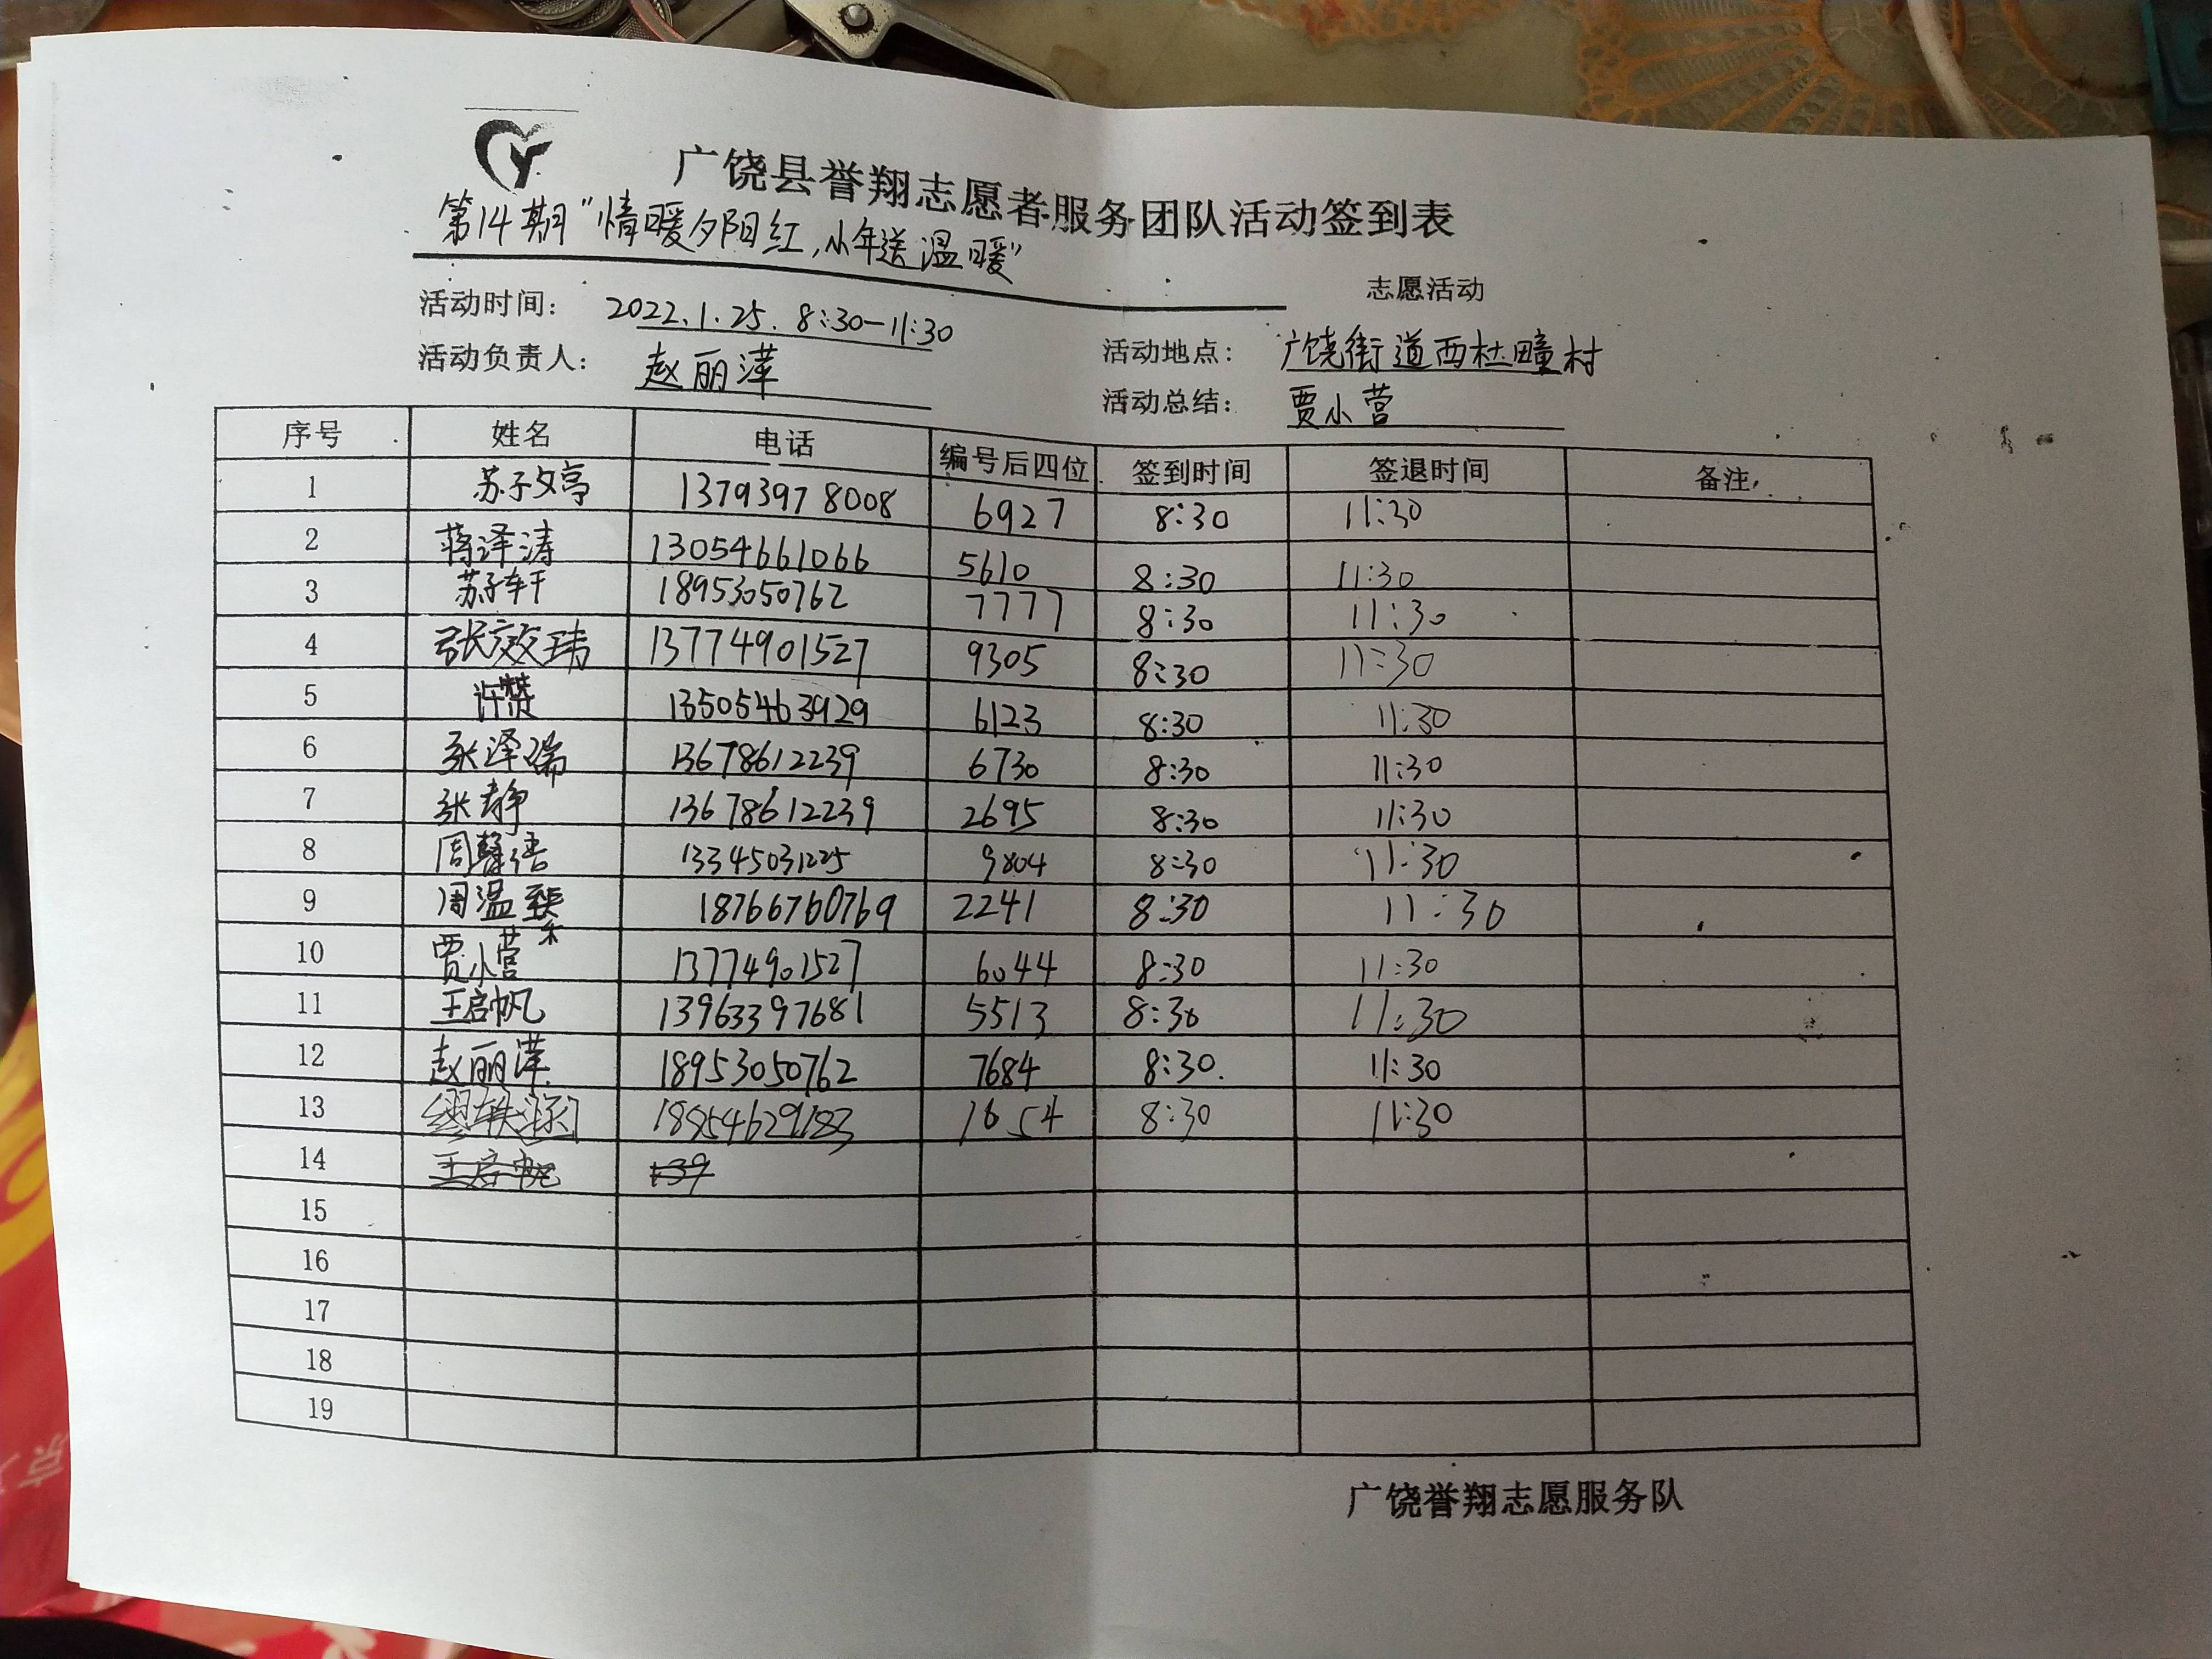 广饶县誉翔志愿者服务团队活动签到表
第14期“情暖夕阳红,小年送温暖”
志愿活动
活动时间: 2022.1.25. 8:30-11:30
活动地点: 广饶街道西杜疃村
活动负责人: 赵丽萍
活动总结: 贾小营
序号 姓名 电话 编号后四位 签到时间 签退时间 备注
1 苏子文亭 13793978008 6927 8:30 11:30
2 蒋泽涛 13054661066 5610 8:30 11:30
3 苏子轩 18953050762 7777 8:30 11:30
4 张效玮 13774901527 9305 8:30 11:30
5 许赞 13505463929 6123 8:30 11:30
6 张泽瑞 13678612239 6730 8:30 11:30
7 张静 13678612239 2695 8:30 11:30
8 周馨语 13345031225 9804 8:30 11:30
9 周温 18766760769 2241 8:30 11:30
10 贾小营 13774901527 6044 8:30 11:30
11 王启帆 13963397681 5513 8:30 11:30
12 赵丽萍 18953050762 7684 8:30. 11:30
13 缪轶涵 18954629183 1654 8:30 11:30
14 王启帆 139
15
16
17
18
19
广饶誉翔志愿服务队